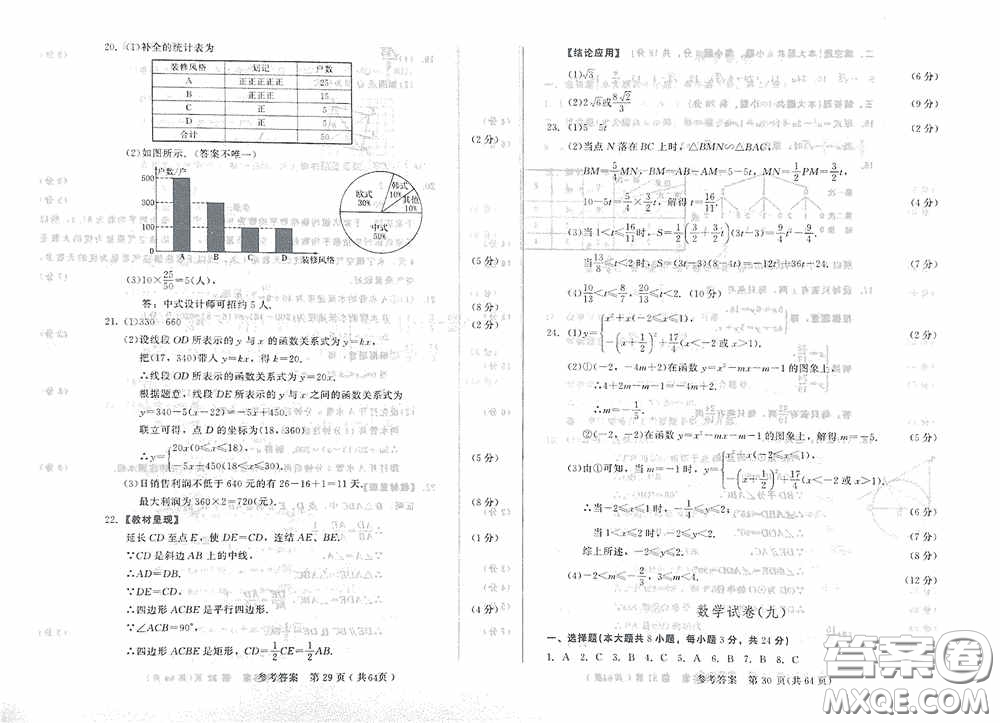 20. (1)补全的统计表为
装修风格 划记 户数
A 正正正正正 25
B 正正正 15
C 正 5
D 正 5
合计 / 50
(2分)
(2)如图所示.(答案不唯一)
户数/户
500
300
100
0 A B C D 装修风格
欧式 30%
韩式 10%
其他 10%
中式 50%
(5分)
(3)10×25/50=5(人).
答:中式设计师可招约5人. (8分)
21. (1)330 660 (2分)
(2)设线段OD所表示的y与x的函数关系式为y=kx,
把(17,340)带入y=kx,得k=20.
∴线段OD所表示的函数关系式为y=20x.
根据题意,线段DE所表示的y与x之间的函数关系式为
y=340-5(x-22)=-5x+450.
联立可得,点D的坐标为(18,360)
∴y={20x(0≤x≤18),
-5x+450(18<x≤30). (5分)
(3)日销售利润不低于640元的有26-16+1=11天.
最大利润为360×2=720(元). (8分)
22.【教材呈现】
延长CD至点E,使DE=CD,连结AE、BE. (1分)
∵CD是斜边AB上的中线,
∴AD=DB.
∵DE=CD,
∴四边形ACBE是平行四边形. (4分)
∵∠ACB=90°,
∴四边形ACBE是矩形,CD=1/2CE=1/2AB.
参考答案 第29页(共64页)
【结论应用】
(1)√3 (6分)
(2)2√6或8√2/3 (9分)
23. (1)5-5t (2分)
(2)当点N落在BC上时,△BMN∽△BAC,
BM=5/4MN,BM=AB-AM=5-5t,MN=1/2PM=3/2t,
10-5t=5/4×3/2t,解得t=16/11. (4分)
(3)当1<t≤16/11时,S=1/2(3/2+3/2t)(3t-3)=9/4t²-9/4.
当13/8≤t<2时,S=(3t-3)(8-4t)=-12t²+36t-24. (7分)
(4)10/13<t≤8/7,20/13≤t<2. (10分)
24. (1)y={x²+x(-2≤x≤1),
-(x+1/2)²+17/4(x<-2或x>1). (2分)
(2)①(-2,-4m+2)在函数y=x²-mx-m-1的图象上,
∴4+2m-m-1=-4m+2.
∴m=-1/5. (4分)
②(-2,-4m+2)在函数y=x²-mx-m-1的图象上,解得m=-5. (5分)
(3)由①可知,当m=-1时,y={x²+x(-2≤x≤1),
-(x+1/2)²+17/4(x<-2或x>1). (6分)
当-2≤x≤1时,-1/4≤y≤2;
当1≤x≤2时,-2≤y<2. (7分)
综上所述,-2≤y≤2. (8分)
(4)-2<m≤-2/3,3≤m≤4. (12分)
数学试卷(九)
一、选择题(本大题共8小题,每小题3分,共24分)
1. A 2. C 3. B 4. C 5. A 6. B 7. B 8. C
参考答案 第30页(共64页)
答案圈
MXQE.COM